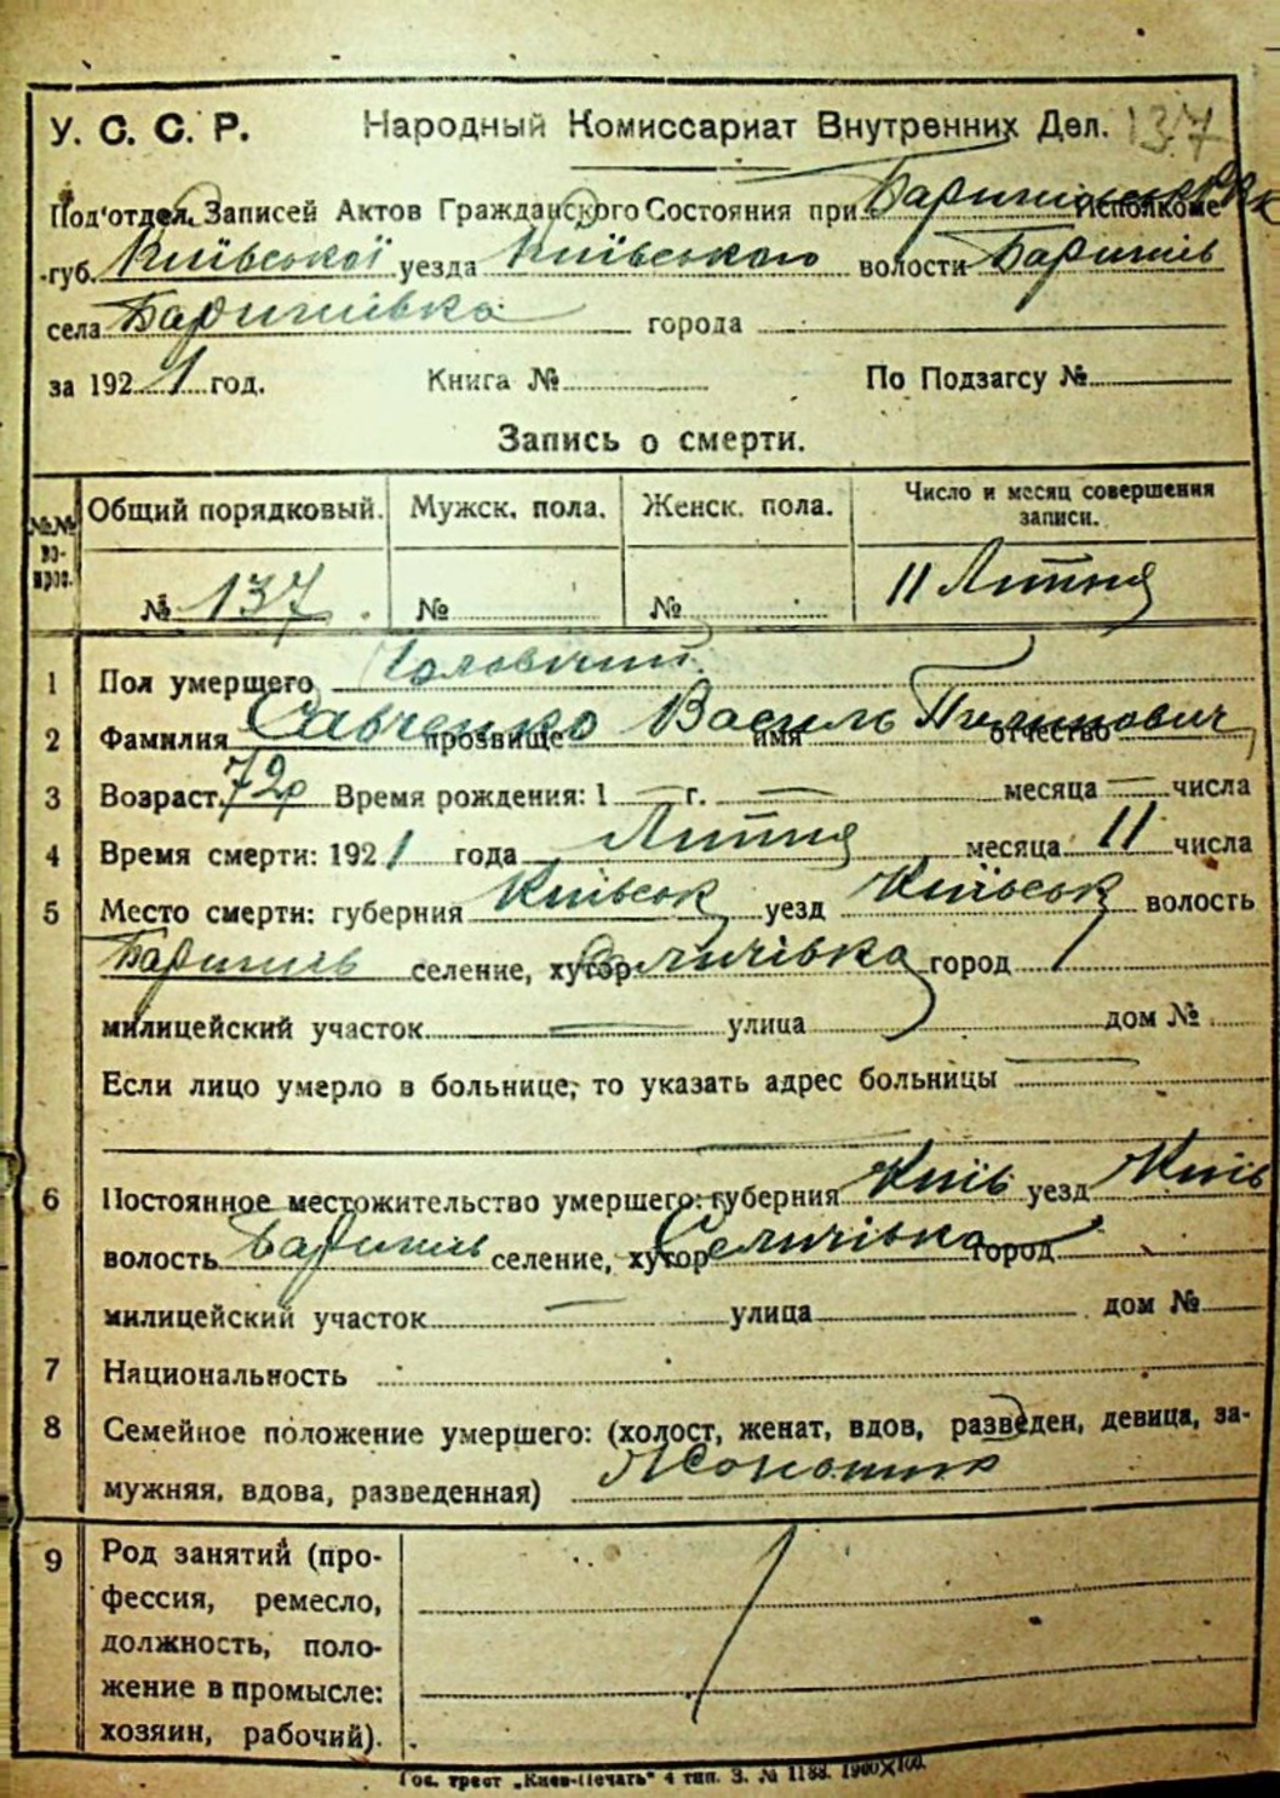 У. С. С. Р. Народный Комиссариат Внутренних Дел. 137
Под'отдел Записей Актов Гражданского Состояния при Исполкоме
губ. Київської уезда Київського волости Баришів
села Баришівка города
за 1921 год. Книга № По Подзагсу №
Запись о смерти.
№№ вопрос. Общий порядковый. Мужск. пола. Женск. пола. Число и месяц совершения записи.
№ 137. № № 11 Липня
1 Пол умершего Чоловічий
2 Фамилия Савченко прозвище имя Василь отчество
3 Возраст 72р Время рождения: 1 г. месяца числа
4 Время смерти: 1921 года Липня месяца 11 числа
5 Место смерти: губерния Київськ уезд Київськ волость
Баришів селение, хутор Селичівка город
милицейский участок улица дом №
Если лицо умерло в больнице, то указать адрес больницы
6 Постоянное местожительство умершего: губерния Київ уезд Київ
волость Баришів селение, хутор Селичівка город
милицейский участок улица дом №
7 Национальность
8 Семейное положение умершего: (холост, женат, вдов, разведен, девица, за-
мужняя, вдова, разведенная) Жонатий
9 Род занятий (про-
фессия, ремесло,
должность, поло-
жение в промысле:
хозяин, рабочий).
Гос. трест „Киев-Печать" 4 тип. З. № 1188. 1900×100.